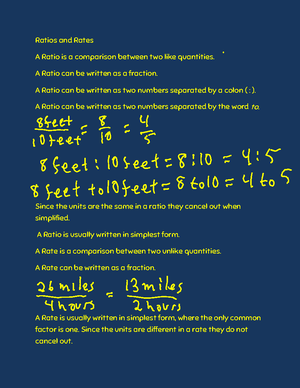 Ratios and Rates
A Ratio is a comparison between two like quantities.
A Ratio can be written as a fraction.
A Ratio can be written as two numbers separated by a colon (:).
A Ratio can be written as two numbers separated by the word to.
8 feet / 10 feet = 8 / 10 = 4 / 5
8 feet : 10 feet = 8 : 10 = 4 : 5
8 feet to 10 feet = 8 to 10 = 4 to 5
Since the units are the same in a ratio they cancel out when
simplified.
A Ratio is usually written in simplest form.
A Rate is a comparison between two unlike quantities.
A Rate can be written as a fraction.
26 miles / 4 hours = 13 miles / 2 hours
A Rate is usually written in simplest form, where the only common
factor is one. Since the units are different in a rate they do not
cancel out.